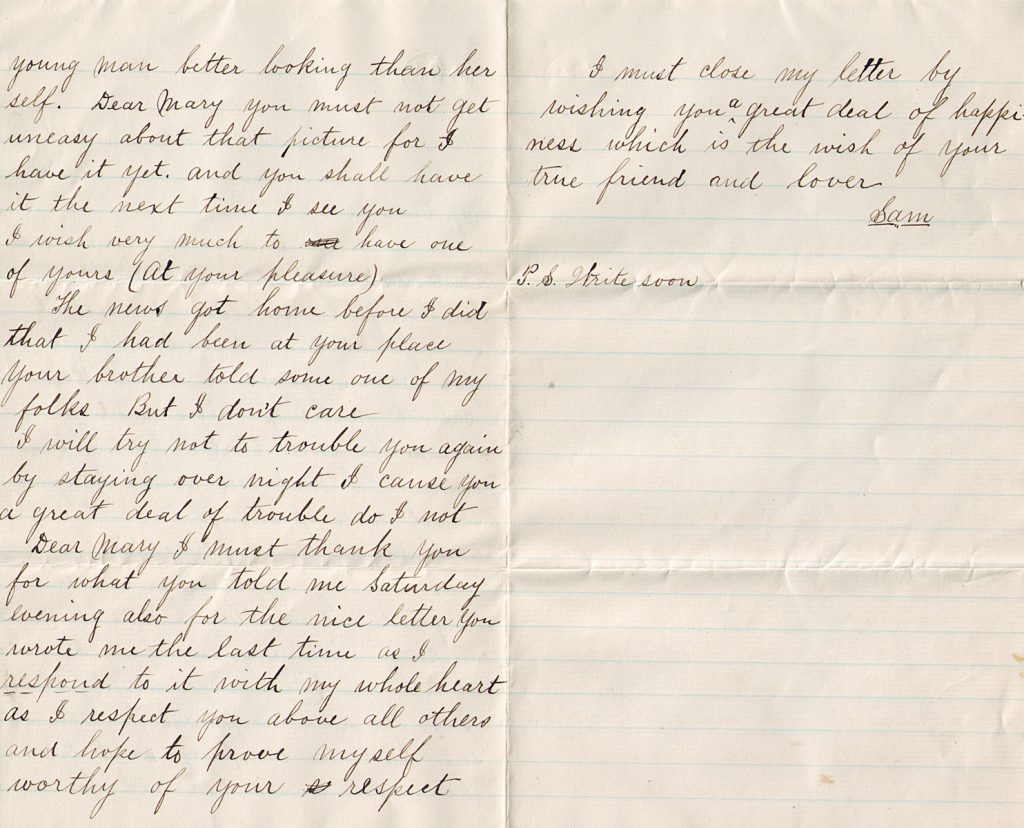 young man better looking than her
self. Dear Mary you must not get
uneasy about that picture for I
have it yet. and you shall have
it the next time I see you
I wish very much to have one
of yours (At your pleasure)
The news got home before I did
that I had been at your place
Your brother told some one of my
folks But I don't care
I will try not to trouble you again
by staying over night I cause you
a great deal of trouble do I not
Dear Mary I must thank you
for what you told me Saturday
evening also for the nice letter you
wrote me the last time as I
respond to it with my whole heart
as I respect you above all others
and hope to prove myself
worthy of your respect
I must close my letter by
wishing you a great deal of happi-
ness which is the wish of your
true friend and lover
Sam
P.S. Write soon